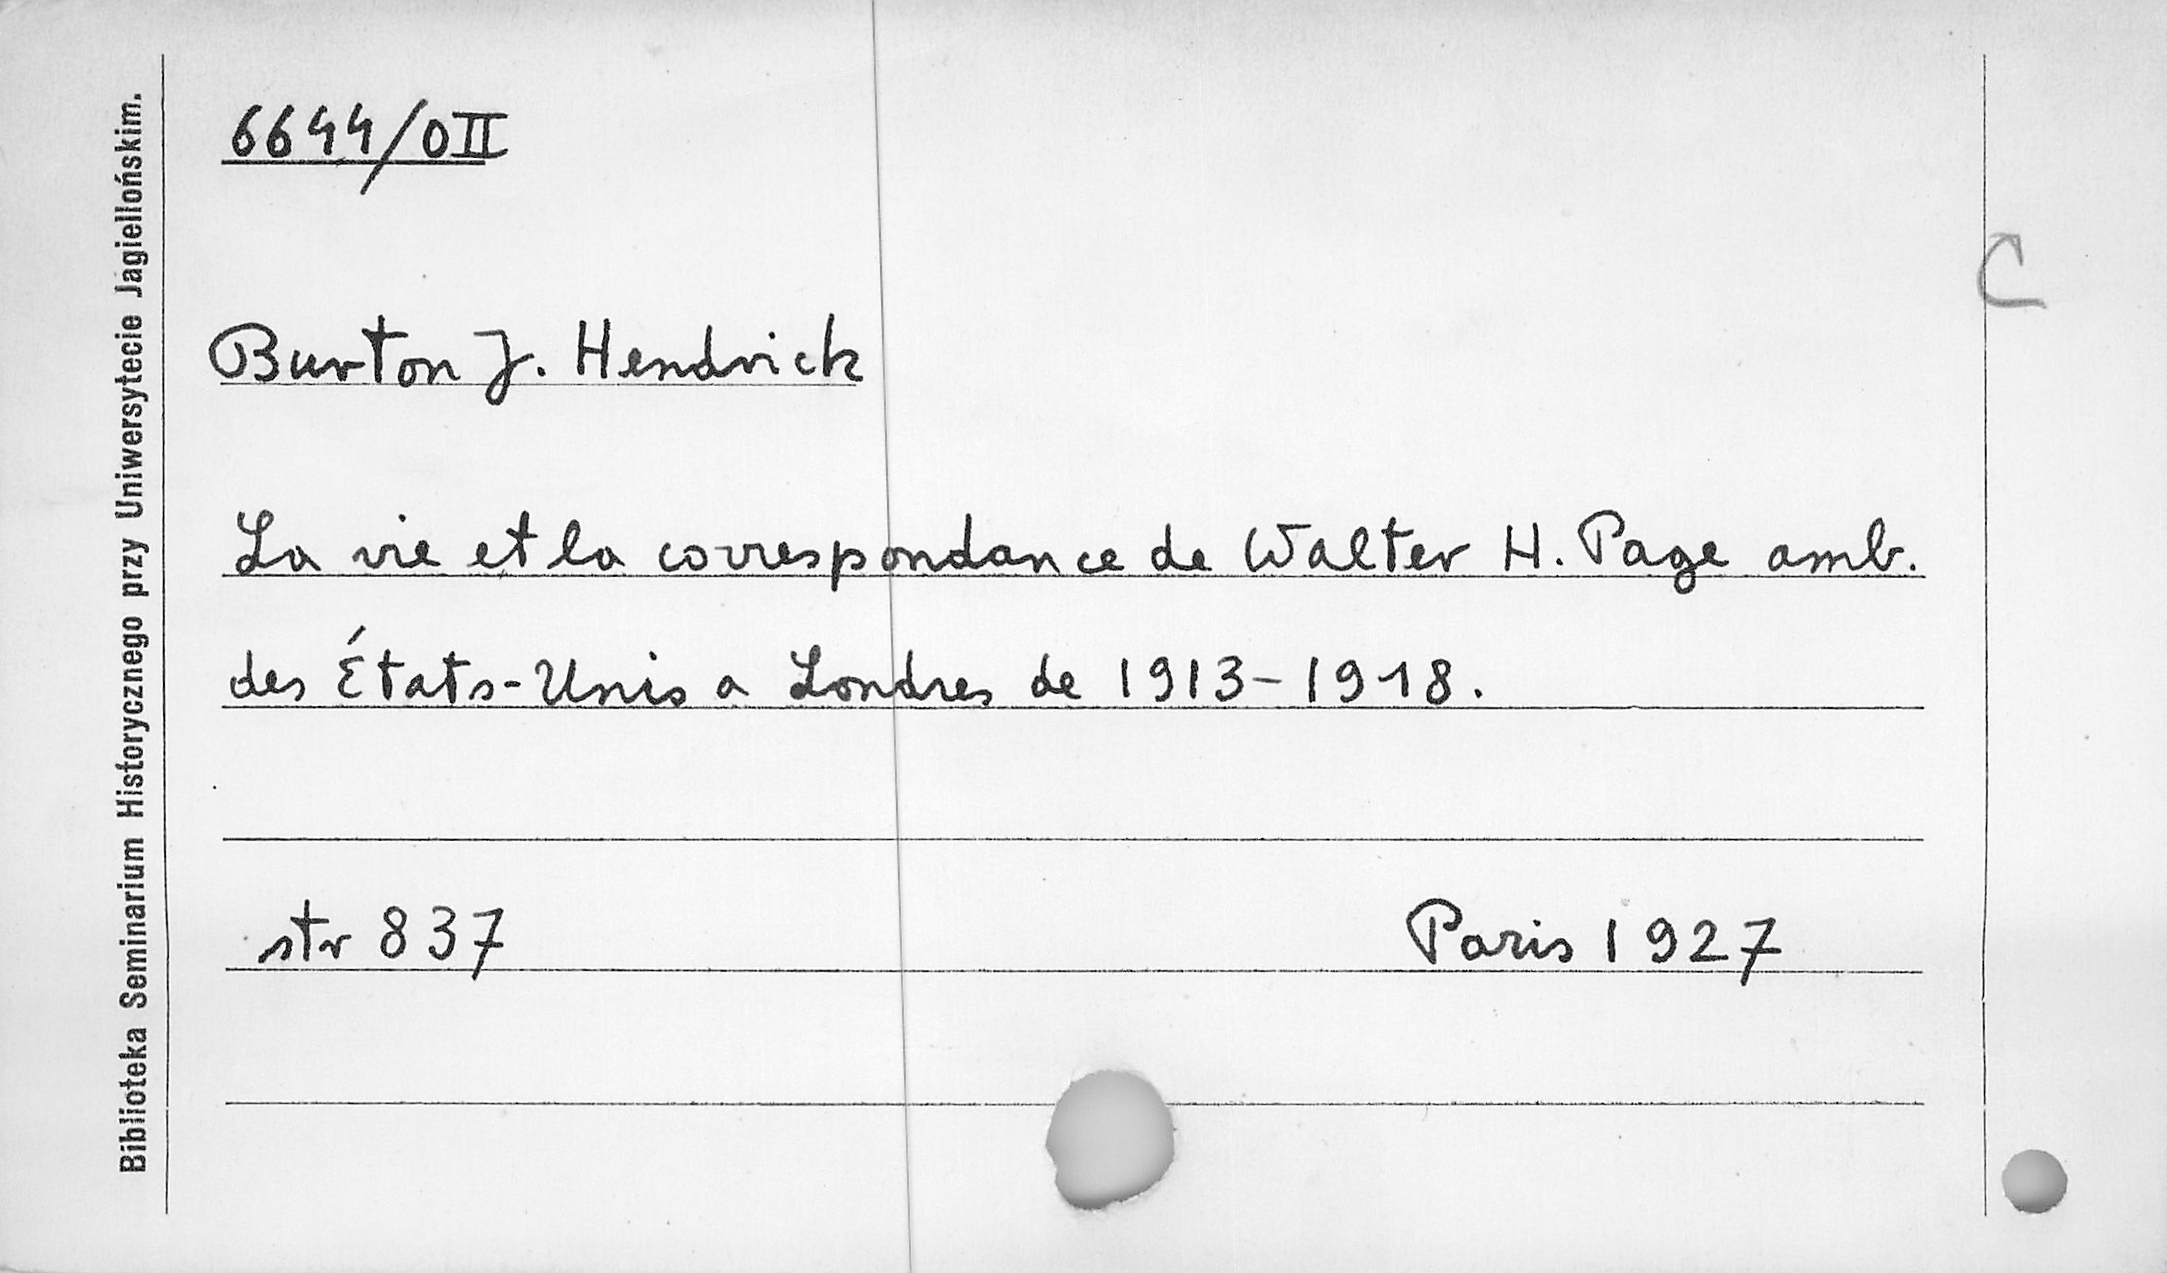 6644/OII
Burton J. Hendrick
La vie et la correspondance de Walter H. Page amb.
des États-Unis a Londres de 1913-1918.
str 837 Paris 1927
Biblioteka Seminarium Historycznego przy Uniwersytecie Jagiellońskim.
C